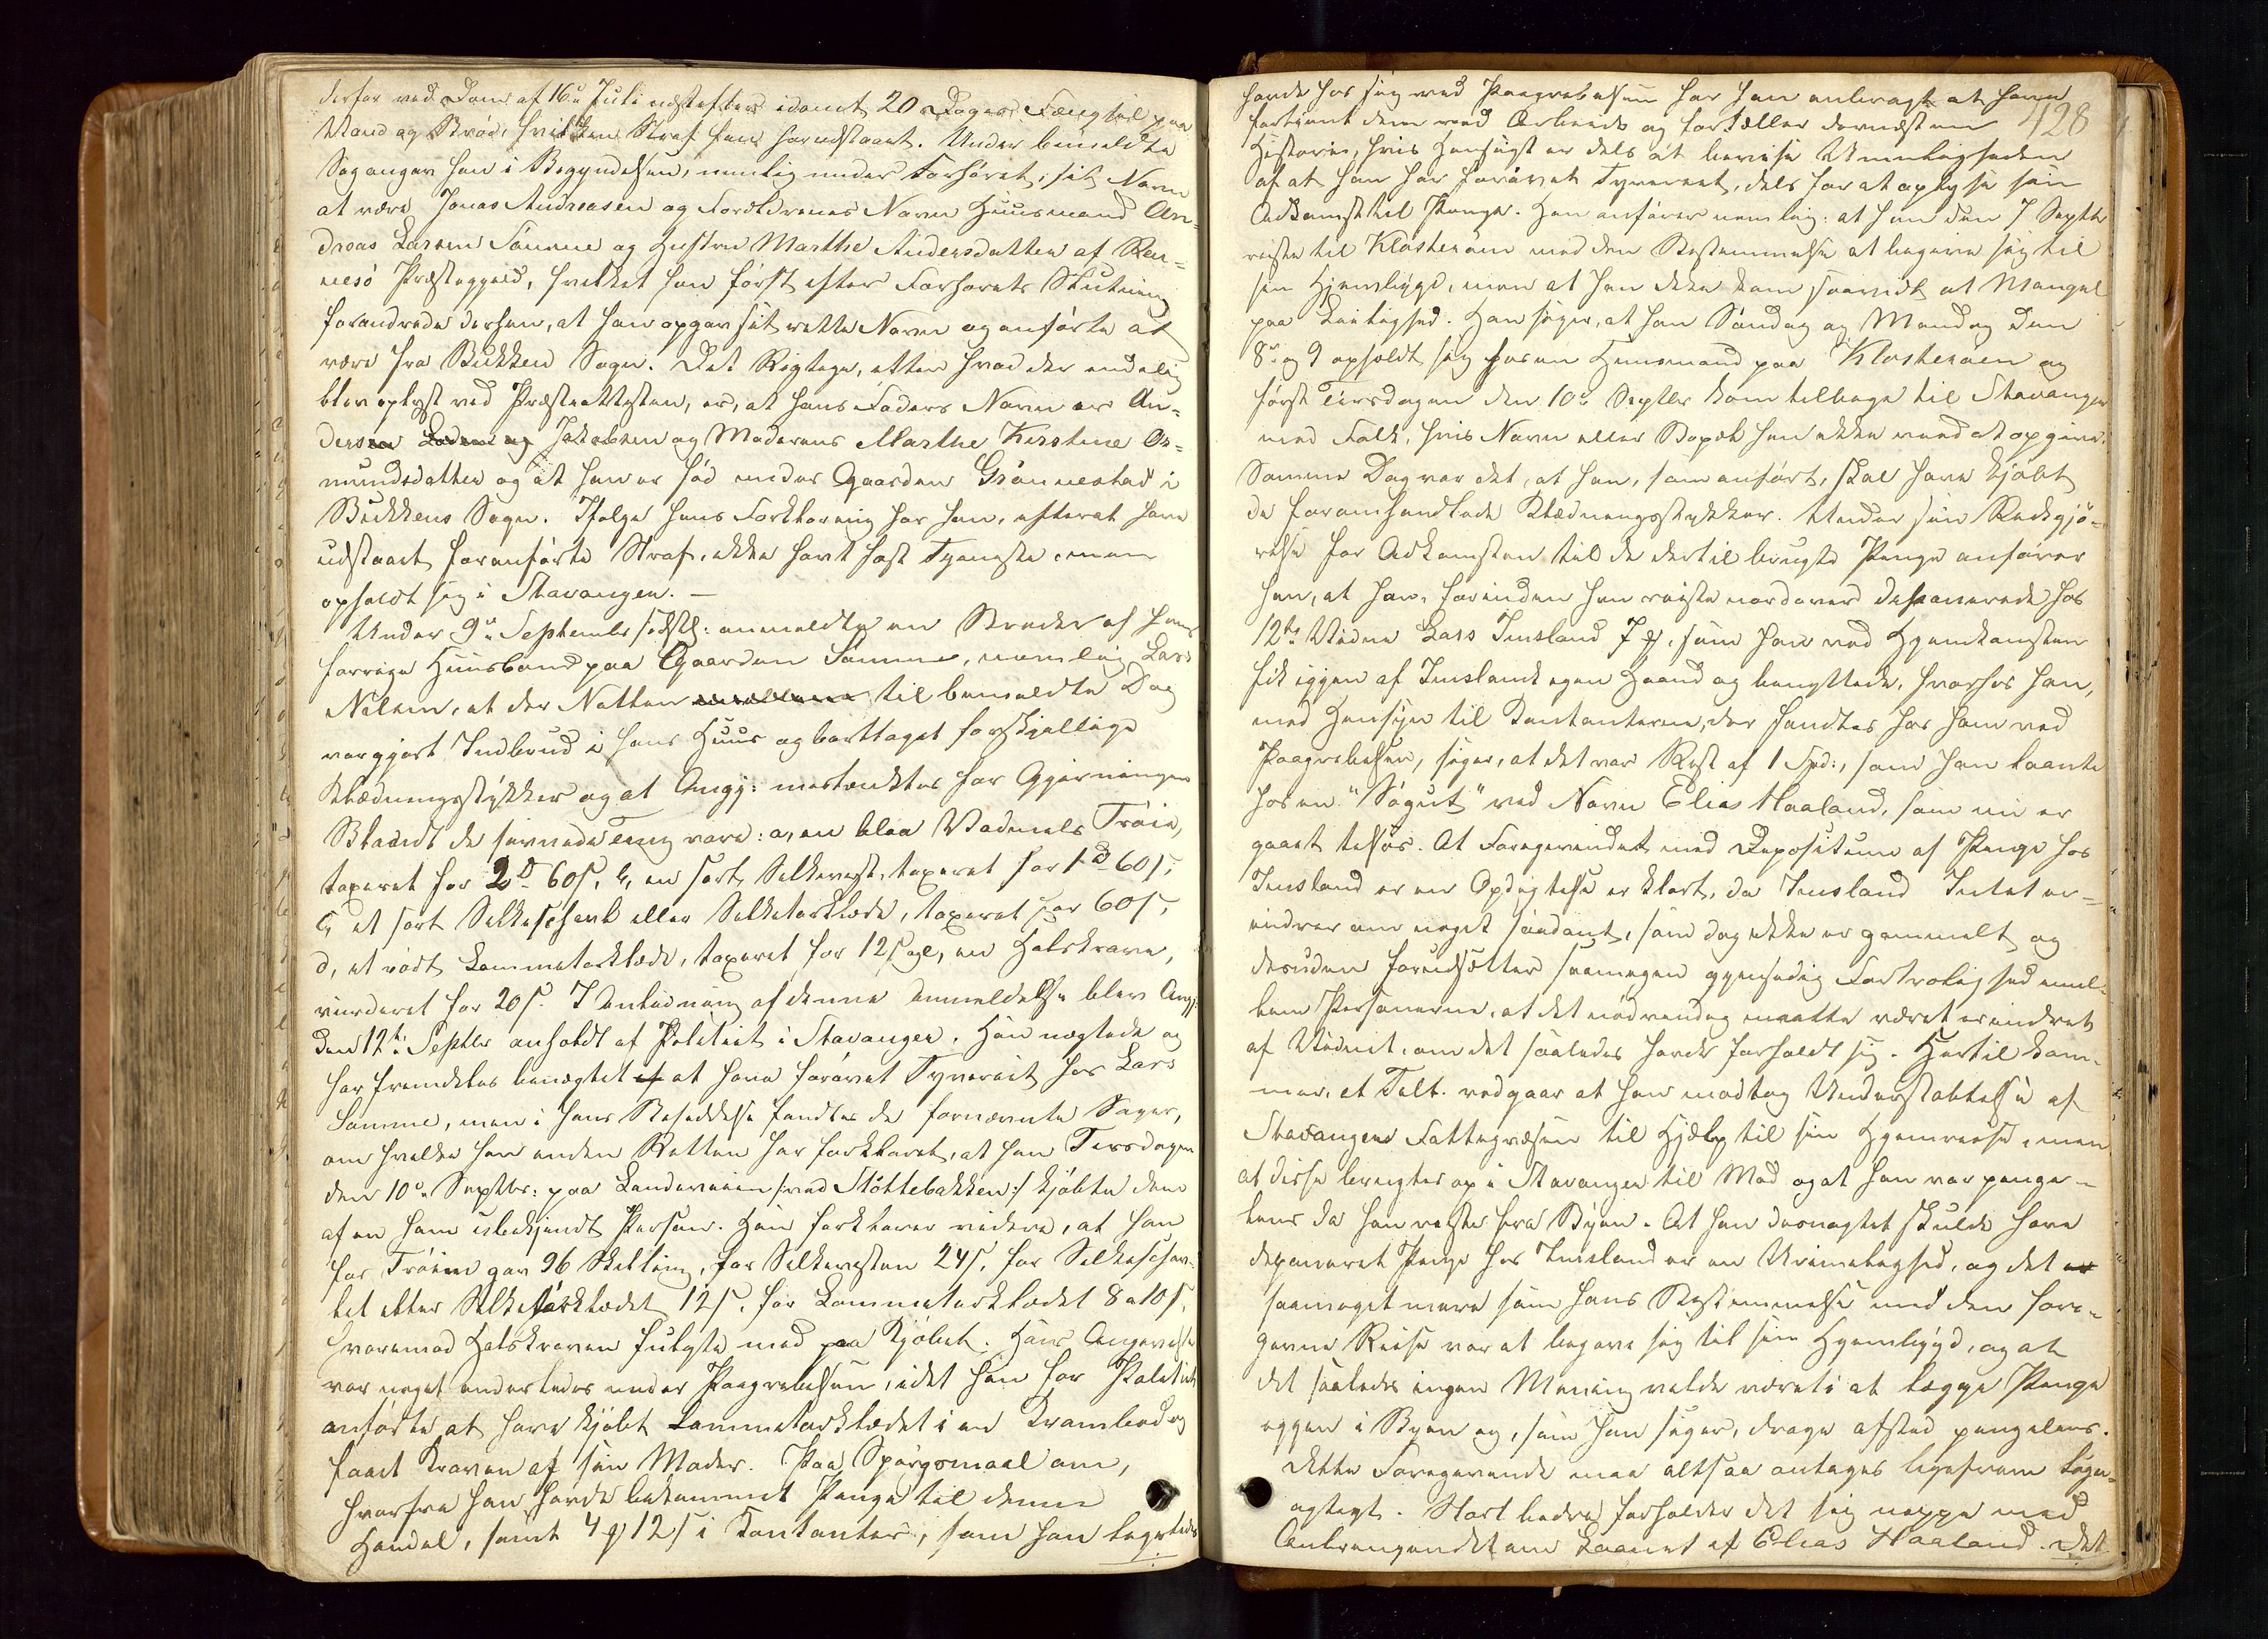 derfor ved Dom af 16de Juli næstefter idømt 20 Dages Fængsel paa
Vand og Brød, hvilken Straf han har udstaaet. Under bemeldte
Sag angav han i Begyndelsen, nemlig under Forhøret, sit Navn
at være Jonas Andreasen og Forældrenes Navn Huusmand An-
dreas Larsen Sömme og Hustru Marthe Andersdatter af Ren-
nesö Præstegjeld, hvilket han først efter Forhørets Slutning
forandrede derhen, at han opgav sit rette Navn og anførte at
være fra Bukken Sogn. Det Rigtige, efter hvad der endelig
blev oplyst ved Præsteattesten, er, at hans Faders Navn er An-
ders Jakobsen og Moderens Marthe Kirstine As-
mundsdatter og at han er fød under Gaarden Grönnestad i
Bukkens Sogn. Ifølge hans Forklaring har han, efterat have
udstaaet foranførte Straf, ikke havt fast Tjeneste, men
opholdt sig i Stavanger. —
Under 9de September sidstl: anmeldte en Broder af hans
forrige Huusbond paa Gaarden Sömme, nemlig Lars
Nilsen, at der Natten til bemeldte Dag
var gjort Indbrud i hans Huus og borttaget forskjellige
Klædningsstykker og at Angj: mistænktes for Gjerningen
Blandt de savnede Ting vare: a, en blaa Vadmels Tröie,
taxeret for 2 D 60 s, b, en sort Silkevest, taxeret for 1 D 60 s,
c, et sort Silkescherf eller Silketørklæde, taxeret for 60 s,
d, et rødt Lommetørklæde, taxeret for 12 s og e, en Halskrave,
vurderet for 20 s. I Anledning af denne Anmeldelse blev Angj:
den 12te Septbr anholdt af Politiet i Stavanger. Han nægtede og
har fremdeles benægtet at have forøvet Tyveriet hos Lars
Sömme, men i hans Besiddelse fandtes de fornævnte Sager,
om hvilke han inden Retten har forklaret, at han Tirsdagen
den 10de Septbr: paa Landeveien /:ved Støttebakken:/ kjøbte dem
af en ham ubekjendt Person. Han forklarer videre, at han
for Trøien gav 96 Skilling, for Silkevesten 24 s, for Silkescher-
fet eller Silketørklædet 12 s, for Lommetørklædet 8 a 10 s,
hvorimod Halskraven fulgte med paa Kjøbet. Hans Angivelse
var noget anderledes under Paagribelsen, idet han for Politiet
anførte, at have kjøbt Lommetørklædet i en Krambod og
faaet Kraven af sin Moder. Paa Spørgsmaal om,
hvorfra han havde bekommet Penge til denne
Handel, samt 4 ort 12 s i Kontanter, som han ligeledes
428
havde hos sig ved Paagribelsen har han anbragt at have
fortjent dem ved Arbeide og fortæller dernæst en
Historie, hvis Hensigt er dels at bevise Umuligheden
af at han har forøvet Tyveriet, dels for at oplyse sin
Adkomst til Penge. Han anfører nemlig: at han den 7 Septbr
reiste til Klosterøen med den Bestemmelse at begive sig til
sin Hjembygd, men at han ikke kom saavidt af Mangel
paa Leilighed. Han siger, at han Søndag og Mandag den
8de og 9 opholdt sig hos en Huusmand paa Klosterøen og
først Tirsdagen den 10de Septbr kom tilbage til Stavanger
med Folk, hvis Navn eller Bopæl han ikke veed at opgive.
Samme Dag var det, at han, som anført, skal have kjøbt
de foromhandlede Klædningsstykker. Under sin Redegjø-
relse for Adkomsten til de dertil brugte Penge anfører
han, at han, forinden han reiste nordover deponerede hos
12te Vidne Lars Imsland 7 ort, som han ved Hjemkomsten
fik igjen af Imslands egen Haand og benyttede, hvorhos han,
med Hensyn til Kontanterne, der fandtes hos ham ved
Paagribelsen, siger, at det var Rest af 1 Spd:, som han laante
hos en "Søgut" ved Navn Elias Haaland, som nu er
gaaet tilsøs. At Foregivendet med Depositum af Penge hos
Imsland er en Opdigtelse er klart, da Imsland Intet er-
indrer om noget saadant, som dog ikke er gammelt og
desuden forudsætter saamegen gjensidig Fortrolighed mel-
lem Personerne, at det nødvendig maatte været erindret
af Vidnet, om det saaledes havde forholdt sig. Hertil kom-
mer, at Tilt. vedgaar at han modtog Understøttelse af
Stavangers Fattigvæsen til Hjælp til sin Hjemreise, men
at disse brugtes op i Stavanger til Mad og at han var penge-
løs da han reiste fra Byen. At han desuagtet skulde have
deponeret Penge hos Imsland er en Urimelighed, og det
saameget mere som hans Bestemmelse med den fore-
givne Reise var at begive sig til sin Hjembygd, og at
det saaledes ingen Mening vilde været i at lægge Penge
igjen i Byen og, som han siger, drage afsted pengeløs.
Dette Foregivende maa altsaa antages ligefrem løgn-
agtigt. Stort bedre forholder det sig neppe med
Anbringendet om Laanet af Elias Haaland. Det